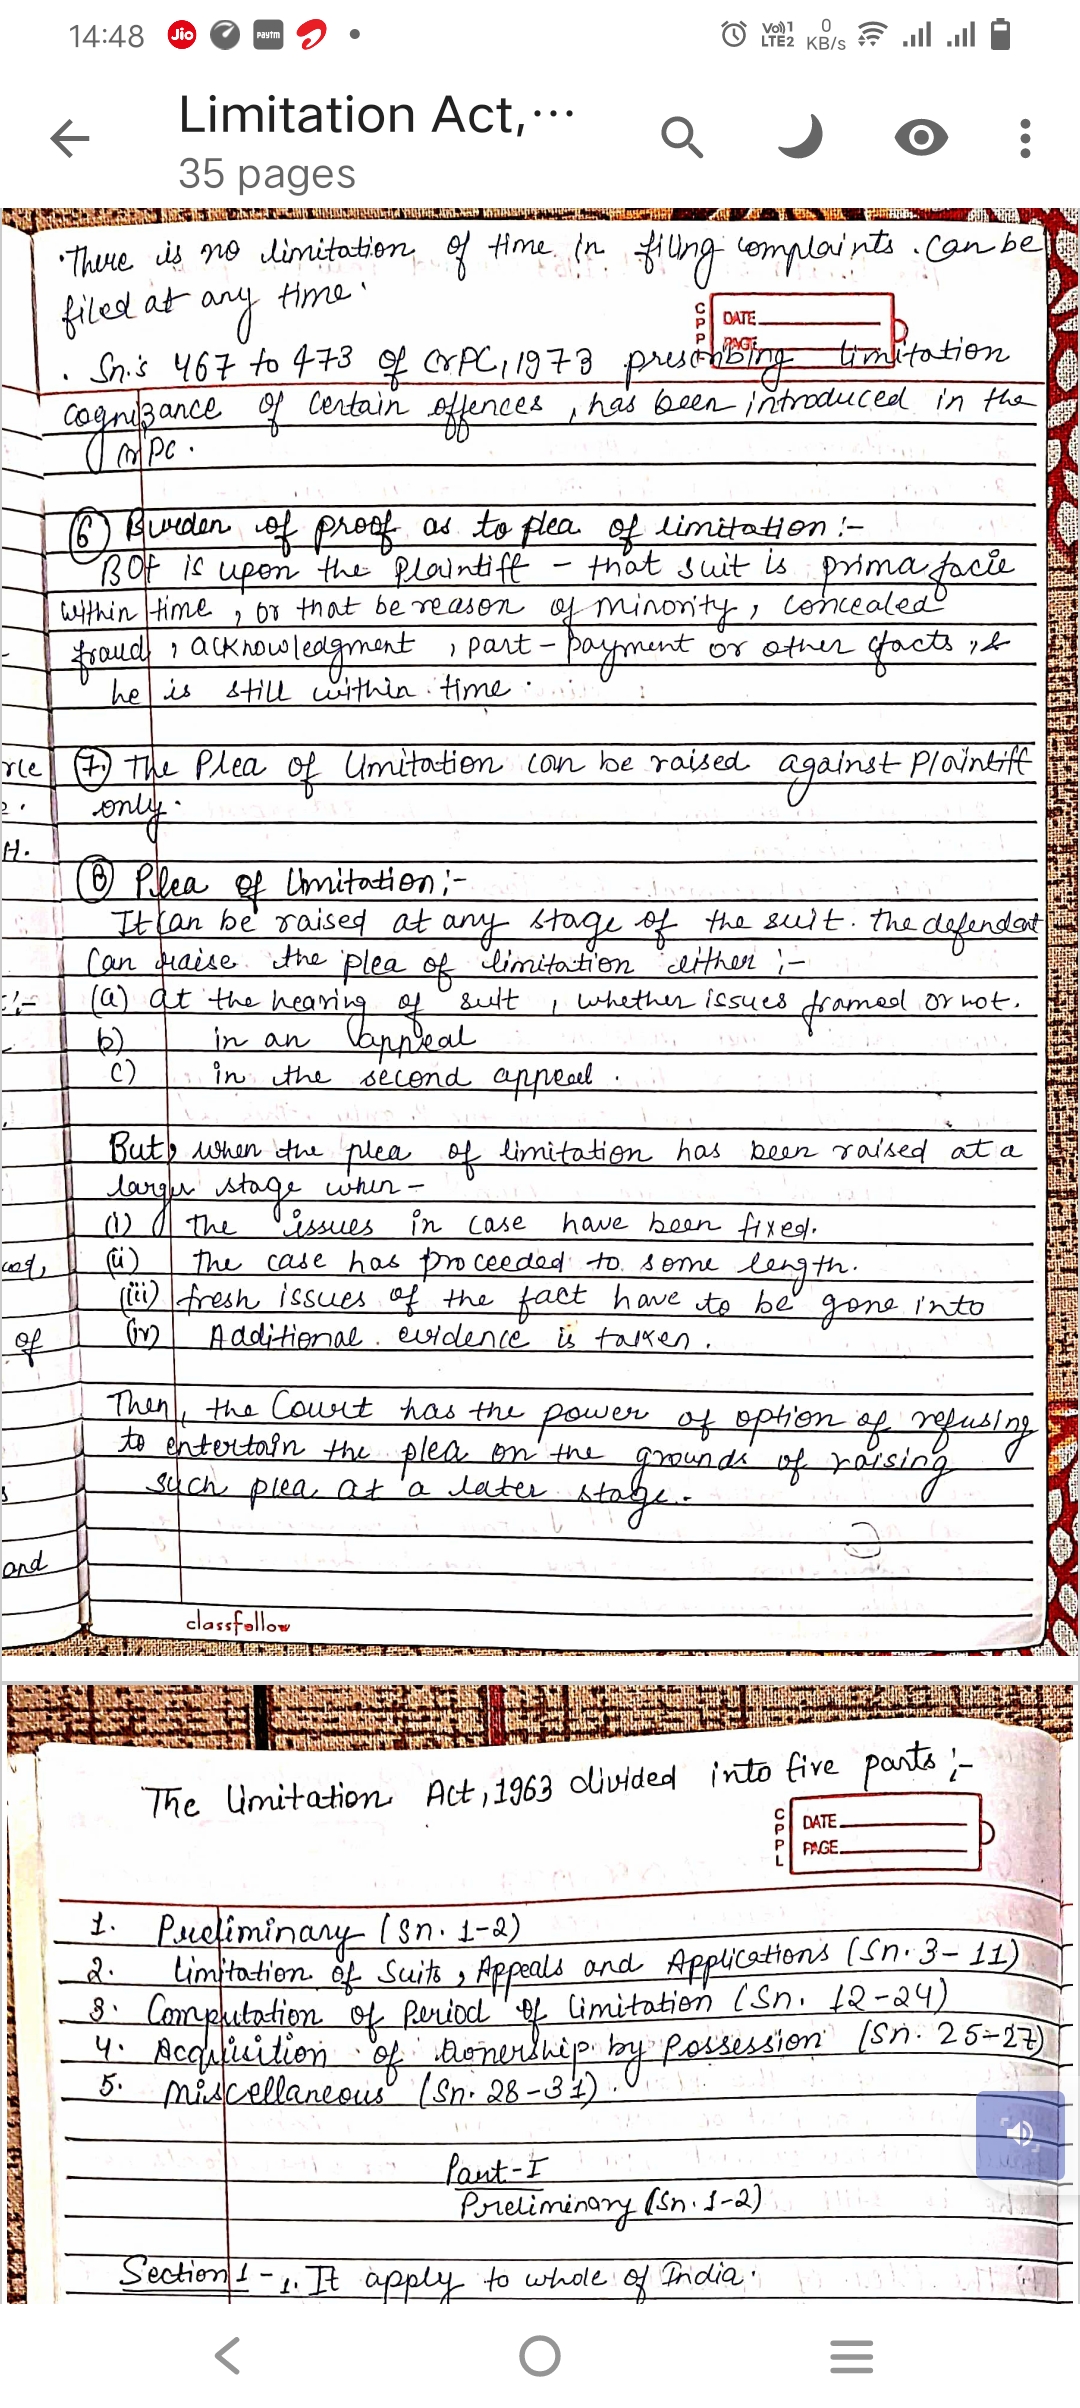 14:48 Jio Paytm Vo)) 1 LTE2 0 KB/s
Limitation Act,...
35 pages
• There is no limitation of time in filing complaints. Can be
filed at any time.
CPP DATE
PAGE
. Sn.'s 467 to 473 of CrPC, 1973 prescribing limitation
cognizance of certain offences, has been introduced in the
CrPC.
(6) Burden of proof as to plea of limitation :-
BOP is upon the Plaintiff - that suit is prima facie
within time, or that be reason of minority, concealed
fraud, acknowledgment, part-payment or other facts, &
he is still within time.
(7.) The Plea of limitation can be raised against Plaintiff
only.
H.
(8) Plea of limitation :-
It can be raised at any stage of the suit. the defendat
Can raise the plea of limitation either :-
(a) at the hearing of suit, whether issues framed or not.
b) in an appeal
c) in the second appeal.
But, when the plea of limitation has been raised at a
larger stage when -
(i) the issues in case have been fixed.
(ii) The case has proceeded to some length.
(iii) fresh issues of the fact have to be gone into
of
(iv) Additional evidence is taken.
Then, the Court has the power of option of refusing
to entertain the plea on the grounds of raising
such plea at a later stage.
and
classfellow
The Limitation Act, 1963 divided into five parts :-
CPPL DATE
PAGE
1. Preliminary (Sn. 1-2)
2. Limitation of Suits, Appeals and Applications (Sn. 3-11)
3. Computation of Period of limitation (Sn. 12-24)
4. Acquisition of Ownership by Possession (Sn. 25-27)
5. Miscellaneous (Sn. 28-31).
Part-I
Preliminary (Sn. 1-2)
Section 1 - 1. It apply to whole of India.